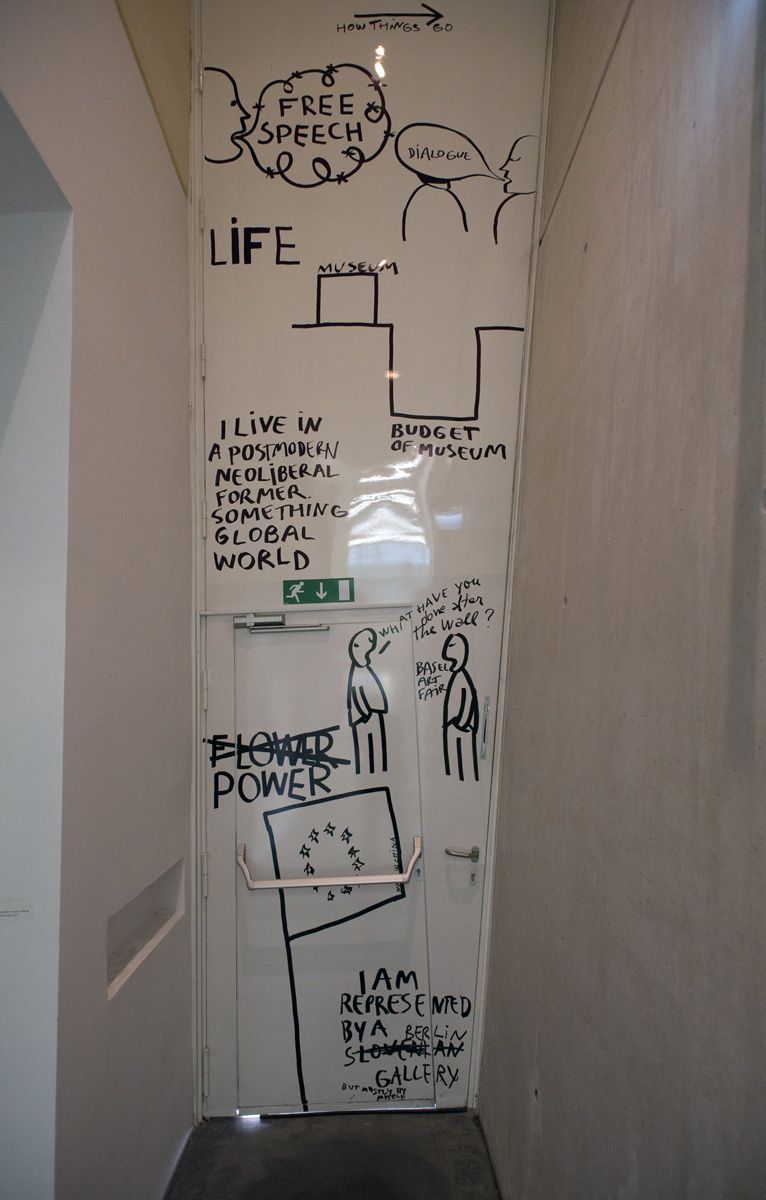 HOW THINGS GO
FREE
SPEECH
DIALOGUE
LIFE
MUSEUM
BUDGET
OF MUSEUM
I LIVE IN
A POSTMODERN
NEOLIBERAL
FORMER.
SOMETHING
GLOBAL
WORLD
WHAT HAVE YOU
done after
the wall?
BASEL
ART
FAIR
FLOWER
POWER
I AM
REPRESENTED
BY A BERLIN
SLOVENIAN
GALLERY
BUT MOSTLY BY
MYSELF